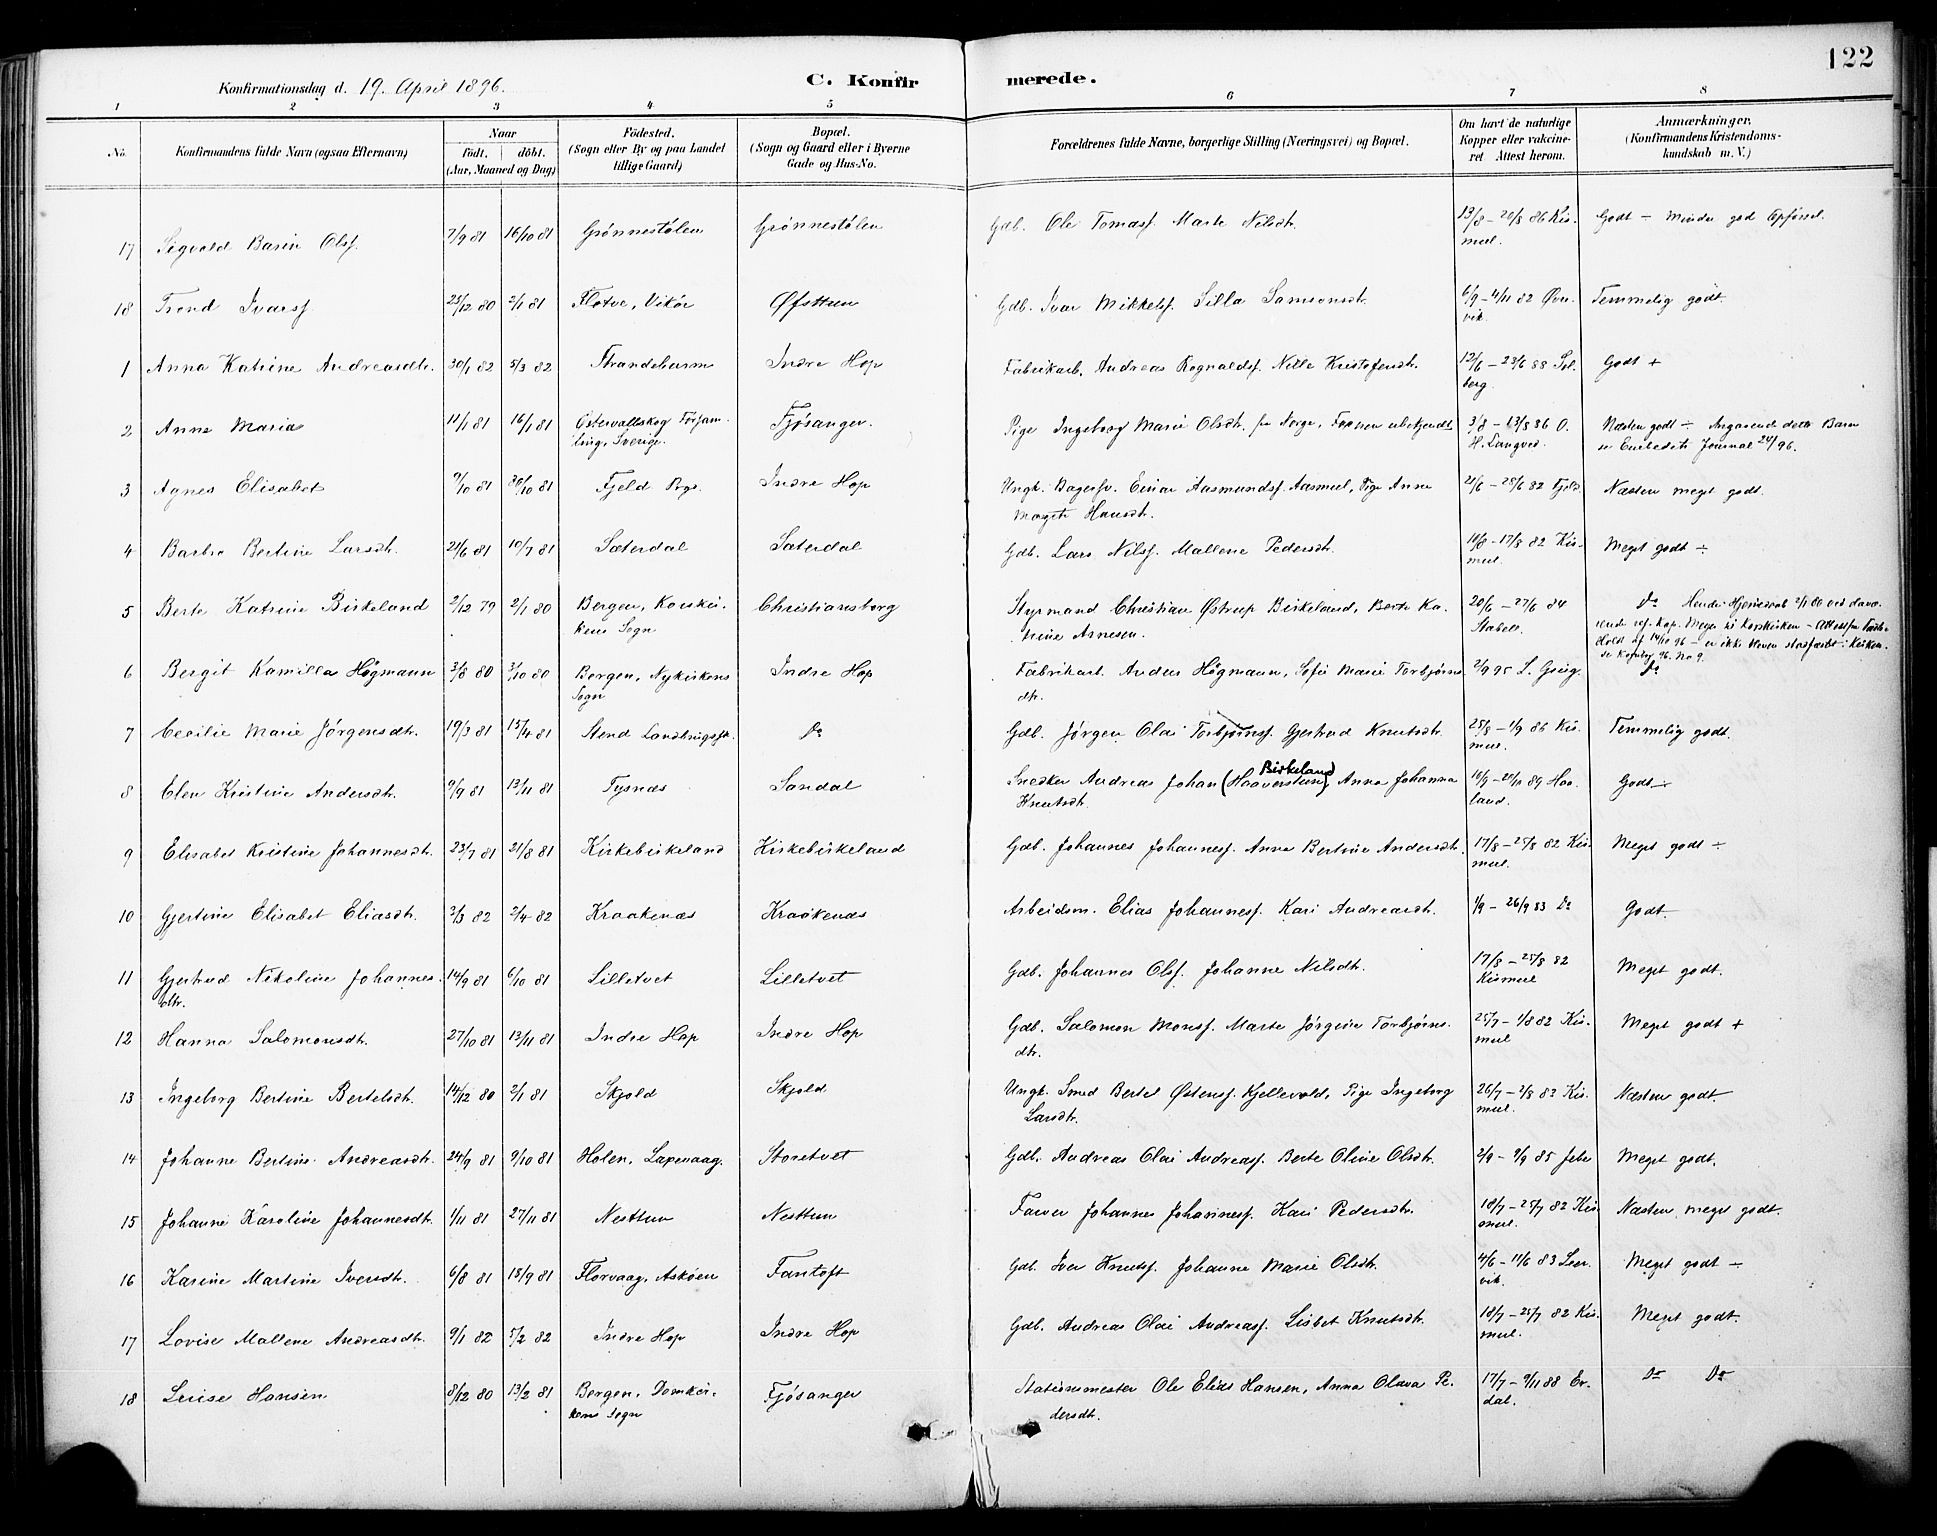 122
Konfirmationsdag d. 19. April 1896.
C. Konfir merede.
1 2 3 4 5 6 7 8
No. Konfirmandens fulde Navn (ogsaa Efternavn) Naar født. døbt. (Aar, Maaned og Dag) Fødested. (Sogn eller By og paa Landet tillige Gaard) Bopæl. (Sogn og Gaard eller i Byerne Gade og Hus-No. Forældrenes fulde Navne, borgerlige Stilling (Næringsvei) og Bopæl. Om havt de naturlige Kopper eller vakcineret Attest herom. Anmærkninger. (Konfirmandens Kristendomskundskab m. V.)
17 Sigvald Barin Olsf. 7/9 81 16/10 81 Grønnestølen Grønnestølen Gdb. Ole Tomasf. Marte Nilsdr. 13/8 – 20/8 86 Kismul. Godt – Mindre god Opførsel.
18 Trond Ivarsf. 23/12 80 2/1 81 Flotve, Vikør Øfsttun Gdb. Ivar Mikkelsf. Silla Samsonsdr. 6/9 – 4/11 82 Temmelig godt.
1 Anna Katrine Andreasdtr. 30/1 82 5/3 82 Strandebarm Indre Hop Fabrikarb. Andreas Rognaldsf. Nille Kristofersdr. 12/6 – 23/6 88 Solberg. Godt +
2 Anna Maria 11/1 81 16/1 81 Østervallskog Sverige. Fjøsanger. Pige Ingeborg Marie Olsdr. fra Norge, Faderen ubekjendt 3/8 – 13/8 86 O. H. Langved. Næsten godt ÷ Angaaende dette Barn Embedets Journal 24/96.
3 Agnes Elisabet 9/10 81 30/10 81 Fjeld Prgr. Indre Hop Ungk. Bagersv. Einar Aasmundsf. Aasmul, Pige Anna Magete Hansdr. 21/6 – 28/6 82 Fjeld Næsten meget godt.
4 Barbra Bertine Larsdr. 21/6 81 10/7 81 Sæterdal Sæterdal Gdb. Lars Nilsf. Mallene Pedersdr. 10/8 – 17/8 82 Kismul. Meget godt ÷
5 Berte Katrine Birkeland 2/12 79 2/1 80 Bergen, Korskirkens Sogn Christiansborg Styrmand Christian Østrup Birkeland, Berte Katrine Arnesen. 20/6 – 27/6 84 Stabell. Do
6 Bergit Kamilla Högmann 3/8 80 3/10 80 Bergen, Nykirkens Sogn Indre Hop Fabrikarb. Anders Högmann, Sofie Marie Torbjørnsdtr. 2/9 95 L. Grieg. Do
7 Cecilie Marie Jørgensdtr. 19/3 81 15/4 81 Stend Landbrugssk. Do Gdb. Jørgen Olai Torbjørnsf. Gjertrud Knutsdr. 25/8 – 1/9 86 Kismul. Temmelig godt.
8 Elen Kristine Andersdtr. 9/9 81 13/11 81 Tysnæs Sandal Snedker Andreas Johan (Haaverstun) Birkeland, Anna Johanna Knutsdr. 89 Haaland. Godt ÷
9 Elisabet Kristine Johannesdr. 23/7 81 21/8 81 Kirkebirkeland Kirkebirkeland Gdb. Johannes Johannesf. Anna Bertine Andersdr. 17/8 – 25/8 82 Kismul. Meget godt ÷
10 Gjertine Elisabet Eliasdr. 2/3 82 2/4 82 Kraakenæs Kraakenæs Arbeidsm. Elias Johannesf. Kari Andreasdr. 1/9 – 26/9 83 Do Godt.
11 Gjertrud Nikoline Johannesdtr. 14/9 81 6/10 81 Lilletvet Lilletvet Gdb. Johannes Olsf. Johanne Nilsdr. 17/8 – 25/8 82 Kismul Meget godt.
12 Hanna Salomonsdtr. 27/10 81 13/11 81 Indre Hop Indre Hop Gdb. Salomon Monsf. Marte Jørgine Torbjørnsdtr. 25/7 – 1/8 82 Kismul Meget godt +
13 Ingeborg Bertine Bertelsdr. 14/12 80 2/1 81 Skjold Skjold Ungk. Smed Bertel Østensf. Kjellevold, Pige Ingeborg Larsdr. 26/7 – 2/8 83 Kismul. Næsten godt.
14 Johanne Bertine Andreasdr. 24/9 81 9/10 81 Holen, Laxevaag. Storetvet Gdb. Andreas Olai Andreasf. Berte Oline Olsdr. 2/9 – 9/9 85 Meget godt.
15 Johanne Karoline Johannesdr. 1/11 81 27/11 81 Nesttun Nesttun Farver Johannes Johannesf. Kari Pedersdr. 18/7 – 25/7 82 Kismul. Næsten meget godt.
16 Karine Martine Iversdr. 6/8 81 18/9 81 Florvaag, Askøen Fantoft Gdb. Iver Knutsf. Johanne Marie Olsdr. 4/6 – 11/6 83 Lervik. Meget godt ÷
17 Lovise Mallene Andreasdr. 9/1 82 5/2 82 Indre Hop Indre Hop Gdb. Andreas Olai Andreasf. Lisbet Knutsdr. 18/7 – 25/7 82 Kismul. Meget godt.
18 Luise Hansen 8/12 80 13/2 81 Bergen, Domkirkens Sogn Fjøsanger Stationsmester Ole Elias Hansen, Anna Olava Pedersdr. 17/7 – 9/11 88 Do Do